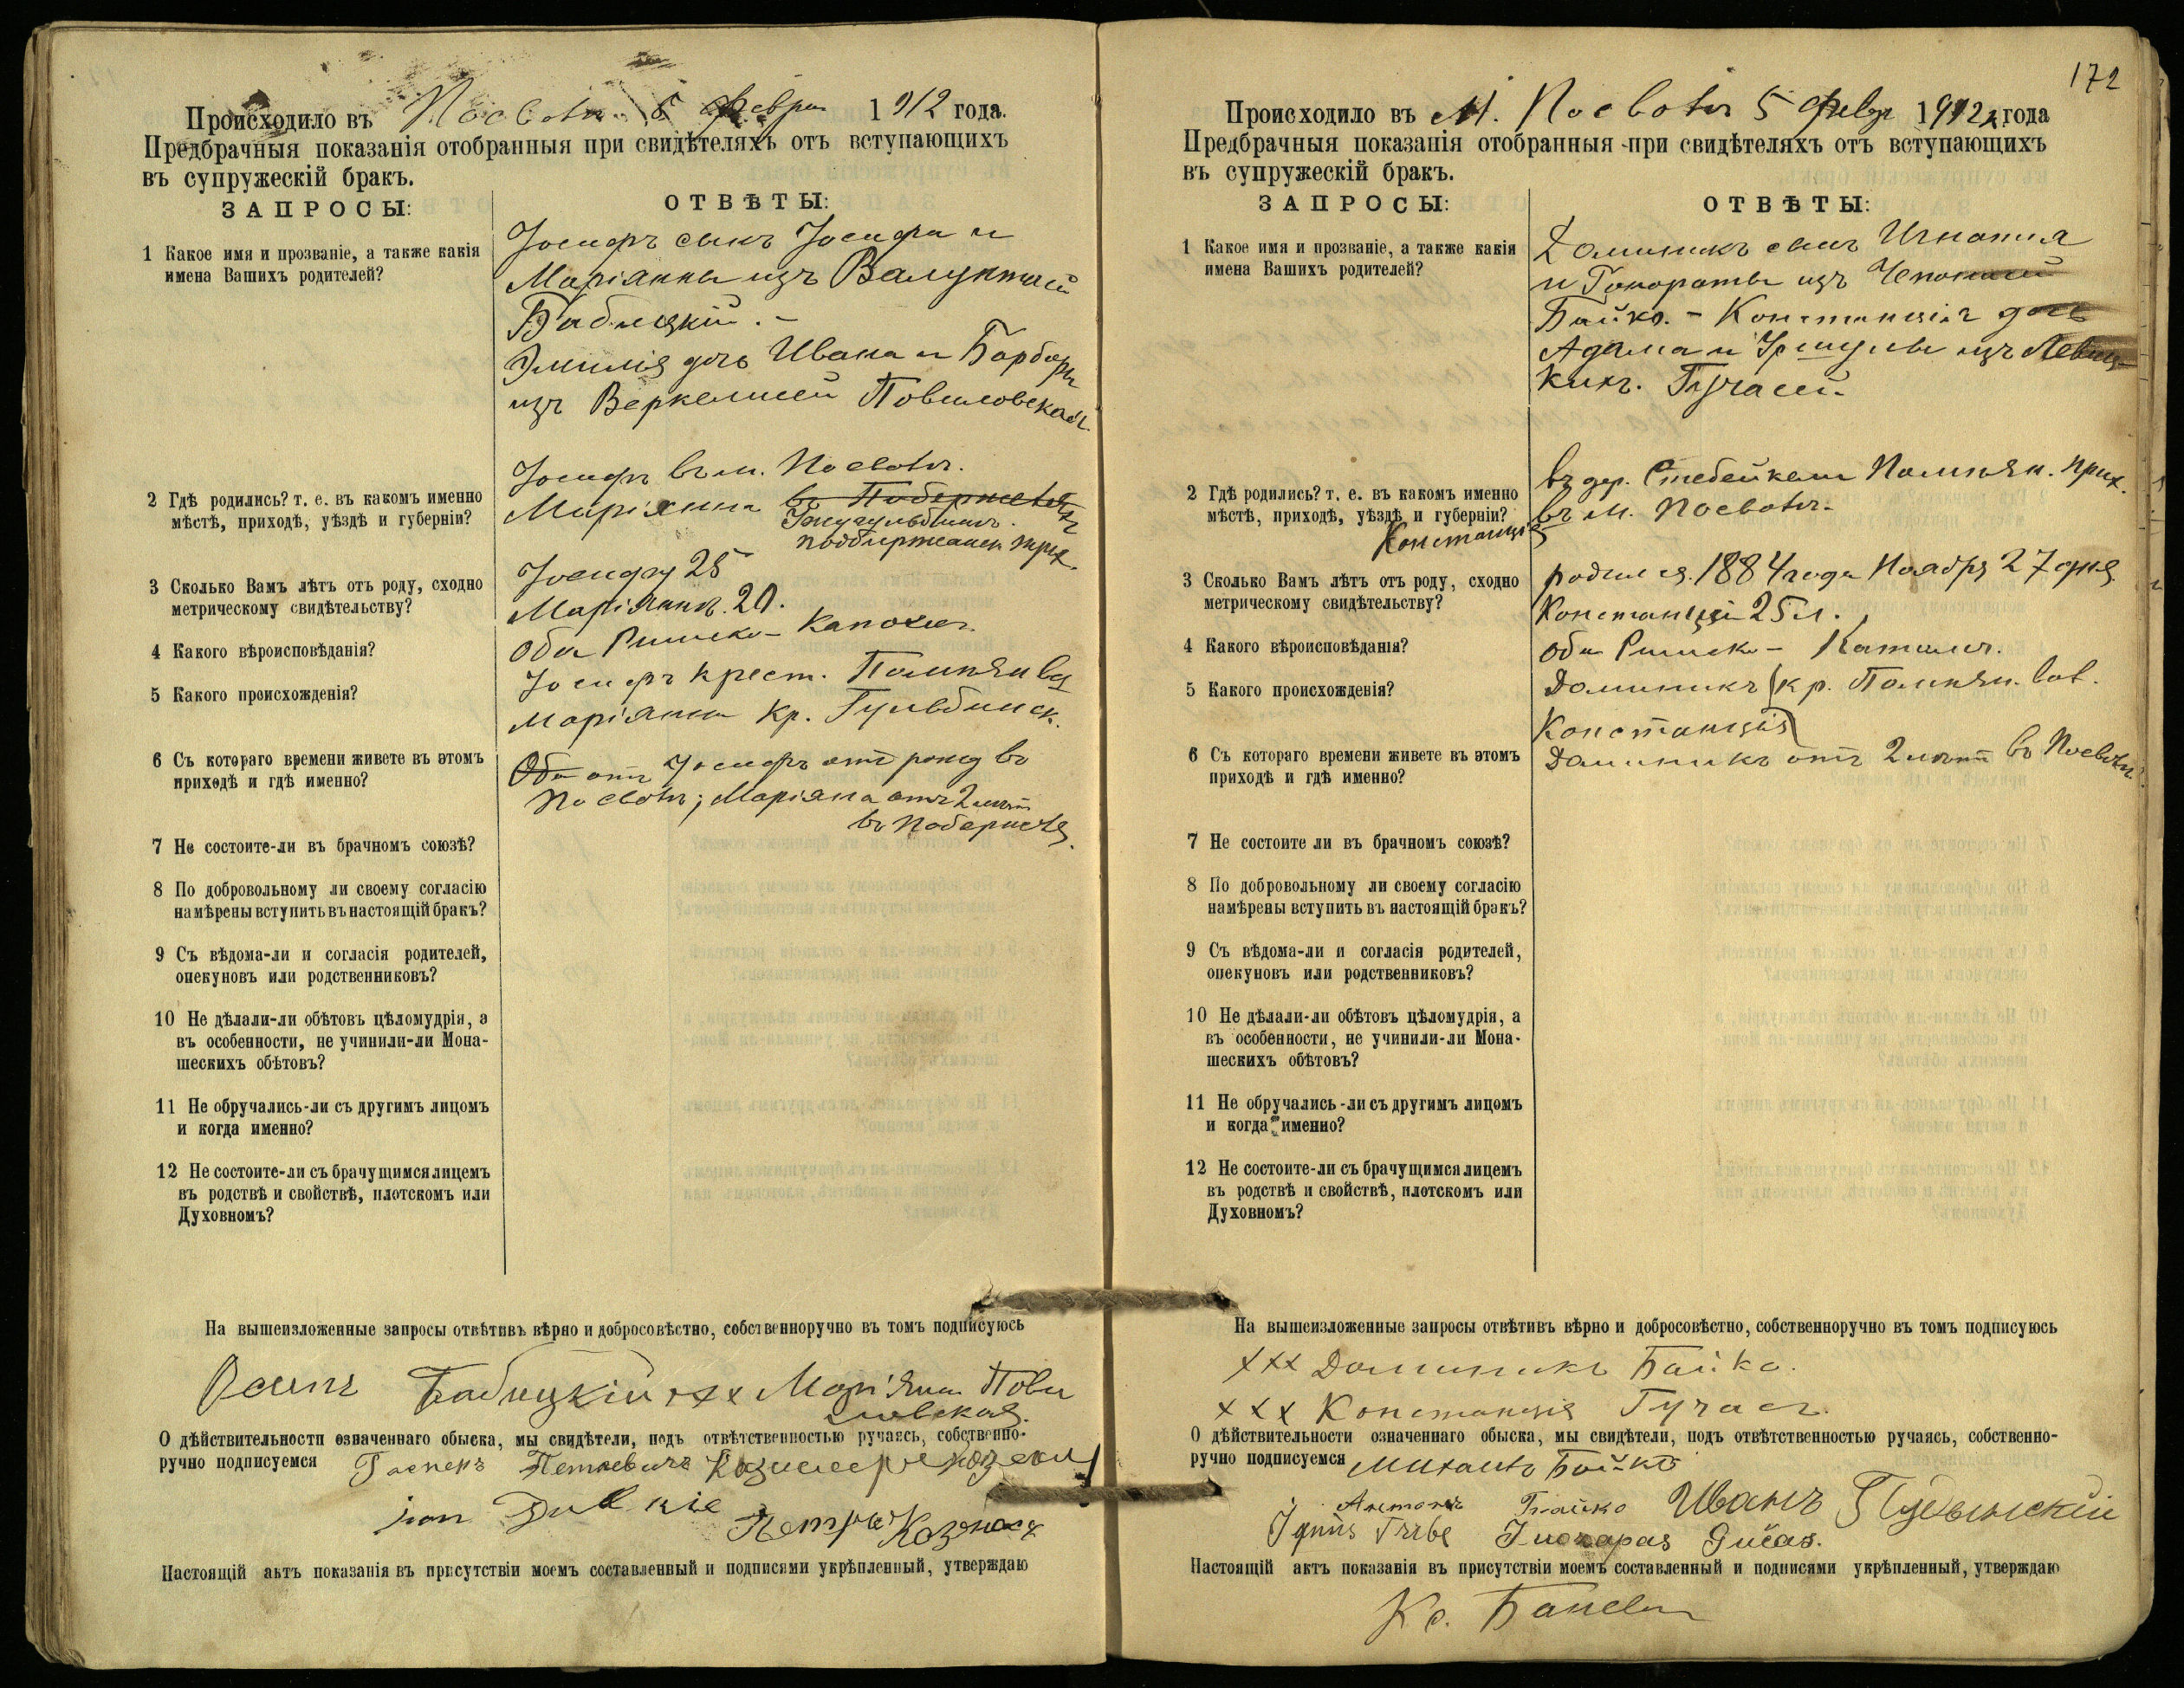 Происходило въ Посволь 5 Февр 1912 года.
Предбрачныя показанія отобранныя при свидѣтеляхъ отъ вступающихъ
въ супружескій бракъ.
ЗАПРОСЫ:
ОТВѢТЫ:
1 Какое имя и прозваніе, а также какія
имена Вашихъ родителей?
Іосифъ сынъ Іосифа и
Маріянны изъ
Бабицкій. -
Эмилія дочь Ивана и Барбары
изъ Веркелисей Повиловская.
2 Гдѣ родились? т. е. въ какомъ именно
мѣстѣ, приходѣ, уѣздѣ и губерніи?
Іосифъ въ м. Посволь.
Маріянна
3 Сколько Вамъ лѣтъ отъ роду, сходно
метрическому свидѣтельству?
Іосифу 25
Маріяннѣ 20.
4 Какого вѣроисповѣданія?
Оба Римско-Католич
5 Какого происхожденія?
Іосифъ крест. Помпян
Маріянна кр. Гульбинск.
6 Съ котораго времени живете въ этомъ
приходѣ и гдѣ именно?
Оба отъ Іосифъ отъ рожд въ
Посволь; Маріяна отъ 2 лѣтъ
7 Не состоите-ли въ брачномъ союзѣ?
8 По добровольному ли своему согласію
намѣрены вступить въ настоящій бракъ?
9 Съ вѣдома-ли и согласія родителей,
опекуновъ или родственниковъ?
10 Не дѣлали-ли обѣтовъ цѣломудрія, а
въ особенности, не учинили-ли Мона-
шескихъ обѣтовъ?
11 Не обручались-ли съ другимъ лицомъ
и когда именно?
12 Не состоите-ли съ брачущимся лицемъ
въ родствѣ и свойствѣ, плотскомъ или
Духовномъ?
На вышеизложенные запросы отвѣтивъ вѣрно и добросовѣстно, собственноручно въ томъ подписуюсь
Осипъ Бабицкій xxx Маріянна Пови
ловская.
О дѣйствительности означеннаго обыска, мы свидѣтели, подъ отвѣтственностью ручаясь, собственно-
ручно подписуемся Петкевичъ
Петръ
Настоящій актъ показанія въ присутствіи моемъ составленный и подписями укрѣпленный, утверждаю
172
Происходило въ М. Посволь 5 Февр 1912 года
Предбрачныя показанія отобранныя при свидѣтеляхъ отъ вступающихъ
въ супружескій бракъ.
ЗАПРОСЫ:
ОТВѢТЫ:
1 Какое имя и прозваніе, а также какія
имена Вашихъ родителей?
Доминикъ сынъ Игнатія
и Гонораты изъ
Байко. - Констанція дочь
Адама и Уршули изъ Левиц
кихъ.
2 Гдѣ родились? т. е. въ какомъ именно
мѣстѣ, приходѣ, уѣздѣ и губерніи?
въ дер. Стебейкели Помпян. прих.
Констанція въ м. Посволь.
3 Сколько Вамъ лѣтъ отъ роду, сходно
метрическому свидѣтельству?
родился 1884 года Ноября 27 дня
Констанціи 25 л.
4 Какого вѣроисповѣданія?
Оба Римско- Католич.
5 Какого происхожденія?
Доминикъ кр. Помпян. вол.
Констанція
6 Съ котораго времени живете въ этомъ
приходѣ и гдѣ именно?
Доминикъ отъ 2 лѣтъ въ Посволь.
7 Не состоите ли въ брачномъ союзѣ?
8 По добровольному ли своему согласію
намѣрены вступить въ настоящій бракъ?
9 Съ вѣдома-ли и согласія родителей,
опекуновъ или родственниковъ?
10 Не дѣлали-ли обѣтовъ цѣломудрія, а
въ особенности, не учинили-ли Мона-
шескихъ обѣтовъ?
11 Не обручались-ли съ другимъ лицомъ
и когда именно?
12 Не состоите-ли съ брачущимся лицемъ
въ родствѣ и свойствѣ, плотскомъ или
Духовномъ?
На вышеизложенные запросы отвѣтивъ вѣрно и добросовѣстно, собственноручно въ томъ подписуюсь
xxx Доминикъ Байко.
xxx Констанція Гучасъ.
О дѣйствительности означеннаго обыска, мы свидѣтели, подъ отвѣтственностью ручаясь, собственно-
ручно подписуемся Михаилъ Байко
Антонъ Байко Иванъ
Gučas.
Настоящій актъ показанія въ присутствіи моемъ составленный и подписями укрѣпленный, утверждаю
Кс.